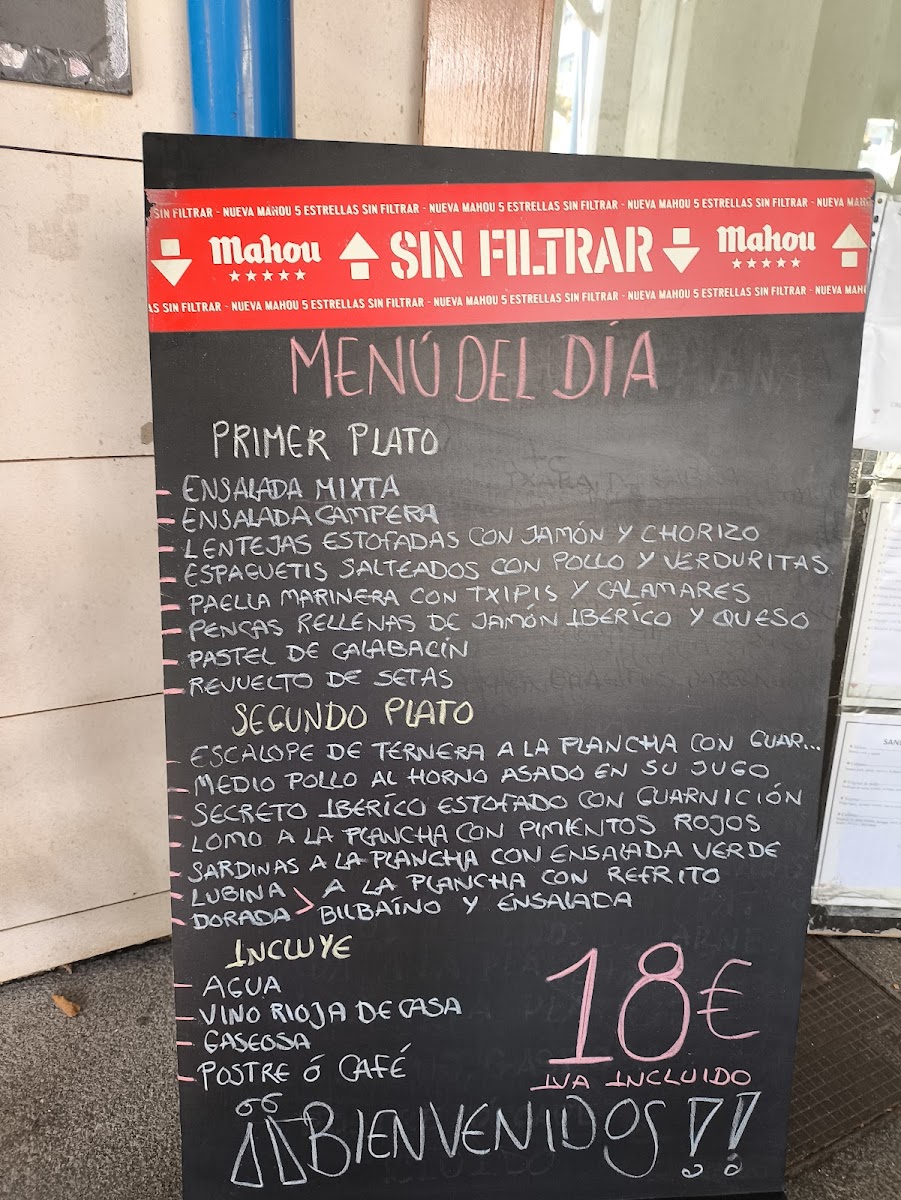 SIN FILTRAR - NUEVA MAHOU 5 ESTRELLAS SIN FILTRAR - NUEVA MAHOU 5 ESTRELLAS SIN FILTRAR - NUEVA MAHOU 5 ESTRELLAS SIN FILTRAR - NUEVA MAH
Mahou SIN FILTRAR Mahou
AS SIN FILTRAR - NUEVA MAHOU 5 ESTRELLAS SIN FILTRAR - NUEVA MAHOU 5 ESTRELLAS SIN FILTRAR - NUEVA MAHOU 5 ESTRELLAS SIN FILTRAR - NUEVA MAH
MENÚ DEL DÍA
PRIMER PLATO
- ENSALADA MIXTA
- ENSALADA CAMPERA
- LENTEJAS ESTOFADAS CON JAMÓN Y CHORIZO
- ESPAGUETIS SALTEADOS CON POLLO Y VERDURITAS
- PAELLA MARINERA CON TXIPIS Y CALAMARES
- PENCAS RELLENAS DE JAMÓN IBERÍCO Y QUESO
- PASTEL DE CALABACÍN
- REVUELTO DE SETAS
SEGUNDO PLATO
- ESCALOPE DE TERNERA A LA PLANCHA CON GUAR...
- MEDIO POLLO AL HORNO ASADO EN SU JUGO
- SECRETO IBERÍCO ESTOFADO CON GUARNICIÓN
- LOMO A LA PLANCHA CON PIMIENTOS ROJOS
- SARDINAS A LA PLANCHA CON ENSALADA VERDE
- LUBINA > A LA PLANCHA CON REFRITO
- DORADA BILBAÍNO Y ENSALADA
INCLUYE
- AGUA
- VINO RIOJA DE CASA
- GASEOSA
- POSTRE Ó CAFÉ
18€
IVA INCLUIDO
¡¡BIENVENIDOS!!